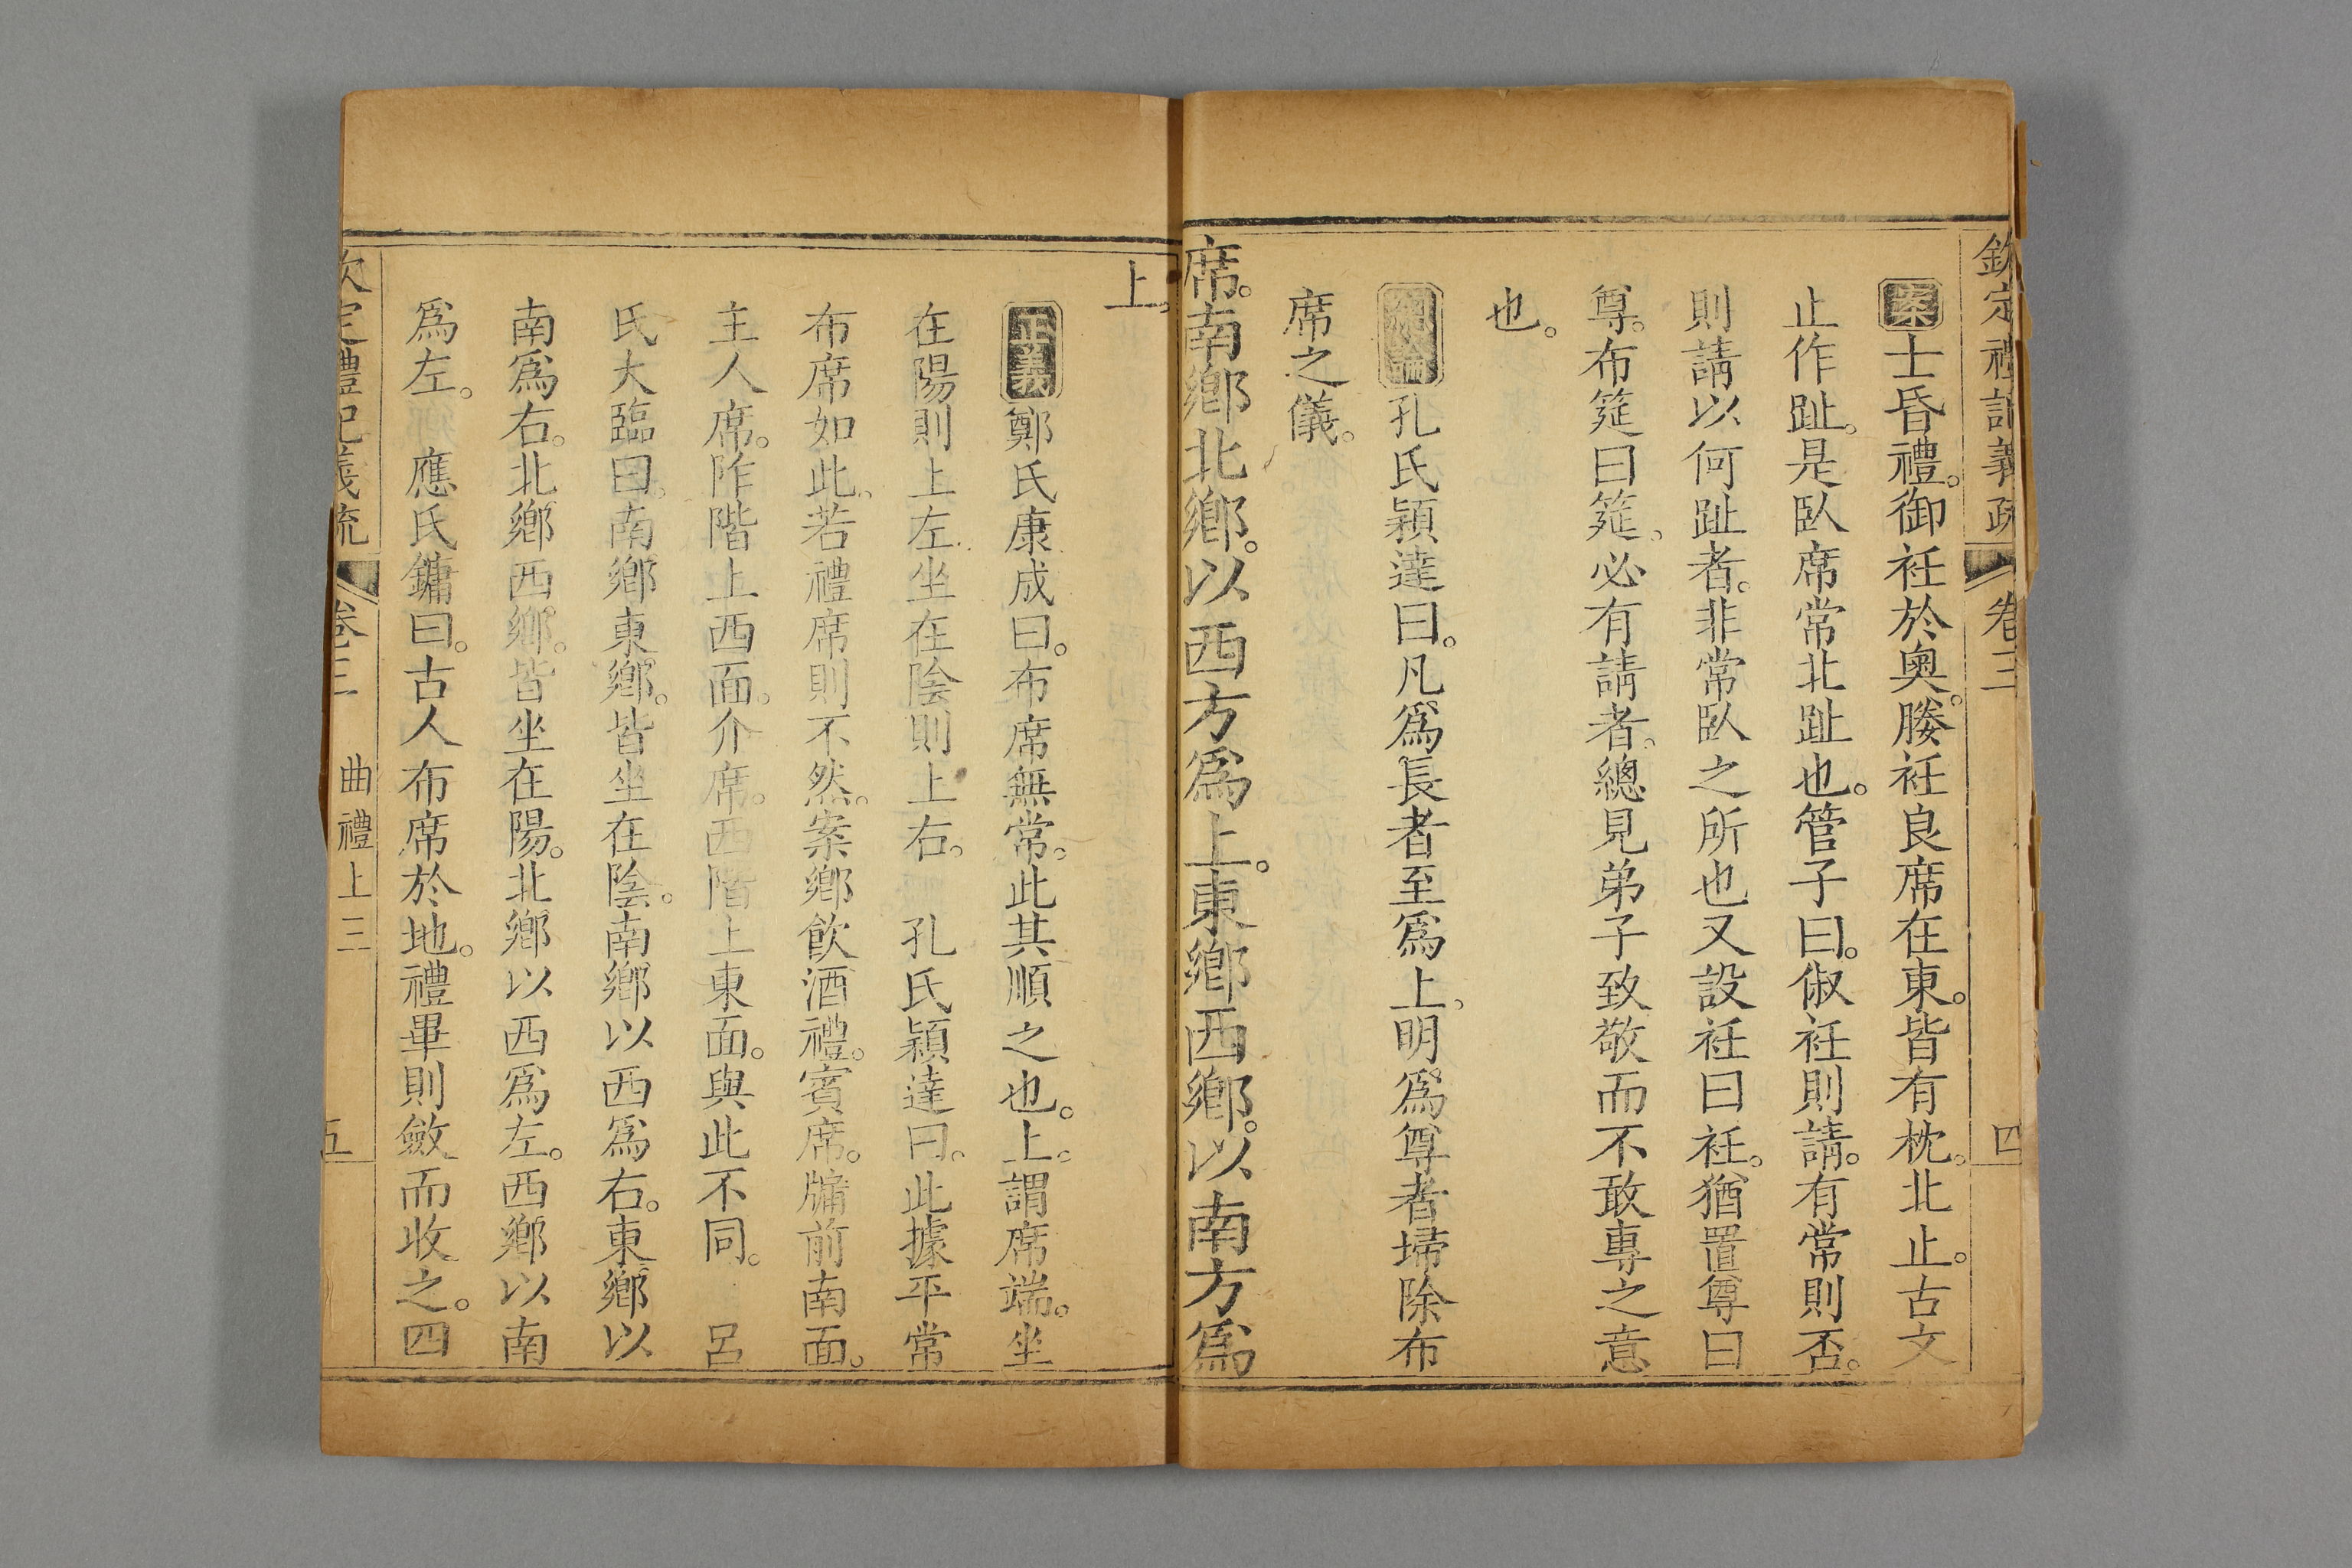 欽定禮記義疏 卷三 四
案士昏禮。御衽於奧。媵衽良席在東。皆有枕。北止。古文
止作趾。是臥席常北趾也。管子曰。俶衽則請。有常則否。
則請以何趾者。非常臥之所也又設衽曰衽。猶置尊曰
尊。布筵曰筵。必有請者。總見弟子致敬而不敢專之意
也。
總論孔氏穎達曰。凡爲長者至爲上。明爲尊者埽除布
席之儀。
席。南鄉北鄉。以西方爲上。東鄉西鄉。以南方爲
上。
正義鄭氏康成曰。布席無常。此其順之也。上。謂席端。坐
在陽則上左。坐在陰則上右。 孔氏穎達曰。此據平常
布席如此。若禮席則不然。案鄉飲酒禮。賓席。牖前南面。
主人席。阼階上西面。介席。西階上東面。與此不同。 呂
氏大臨曰。南鄉東鄉。皆坐在陰。南鄉以西爲右。東鄉以
南爲右。北鄉西鄉。皆坐在陽。北鄉以西爲左。西鄉以南
爲左。 應氏鏞曰。古人布席於地。禮畢則斂而收之。四
欽定禮記義疏 卷三 曲禮上三 五